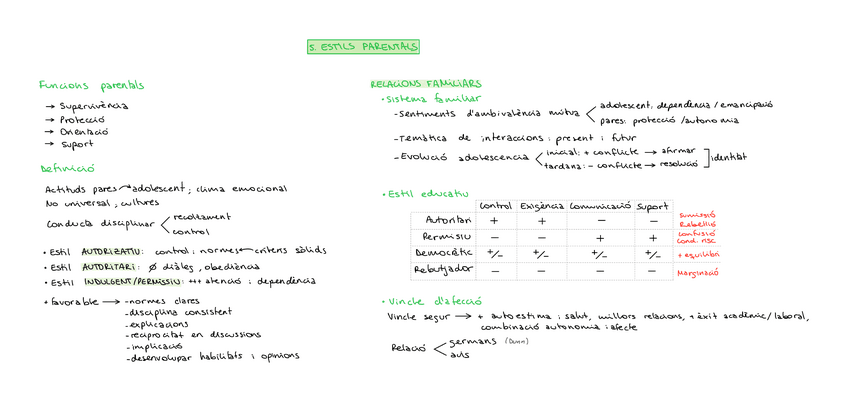 5. ESTILS PARENTALS
Funcions parentals
→ Supervivència
→ Protecció
→ Orientació
→ Suport
Definició
Actituds pares → adolescent ; clima emocional
No universal ; cultures
Conducta disciplinar < recolzament
control
• Estil AUTORIZATIU: control i normes ← criteris sòlids
• Estil AUTORITARI: Ø diàleg, obediència
• Estil INDULGENT/PERMISSIU: +++ atenció i dependència
+ favorable → -normes clares
-disciplina consistent
-explicacions
-reciprocitat en discussions
-implicació
-desenvolupar habilitats i opinions
RELACIONS FAMILIARS
• Sistema familiar
-Sentiments d'ambivalència mútua < adolescent: dependència / emancipació
pares: protecció /autonomia
-Temàtica de interaccions: present i futur
-Evolució adolescencia < inicial: + conflicte → afirmar ] identitat
tardana: - conflicte → resolució
• Estil educatiu
Control Exigència Comunicació Suport
Autoritari + + − − Sumissió Rebel·lió
Permisiu − − + + Confusió Cond. risc
Democràtic +/− +/− +/− +/− + equilibri
Rebutjador − − − − Marginació
• Vincle d'afecció
Vincle segur → + autoestima i salut, millors relacions, + èxit acadèmic/laboral,
combinació autonomia i afecte
Relació < germans (Dunn)
avis